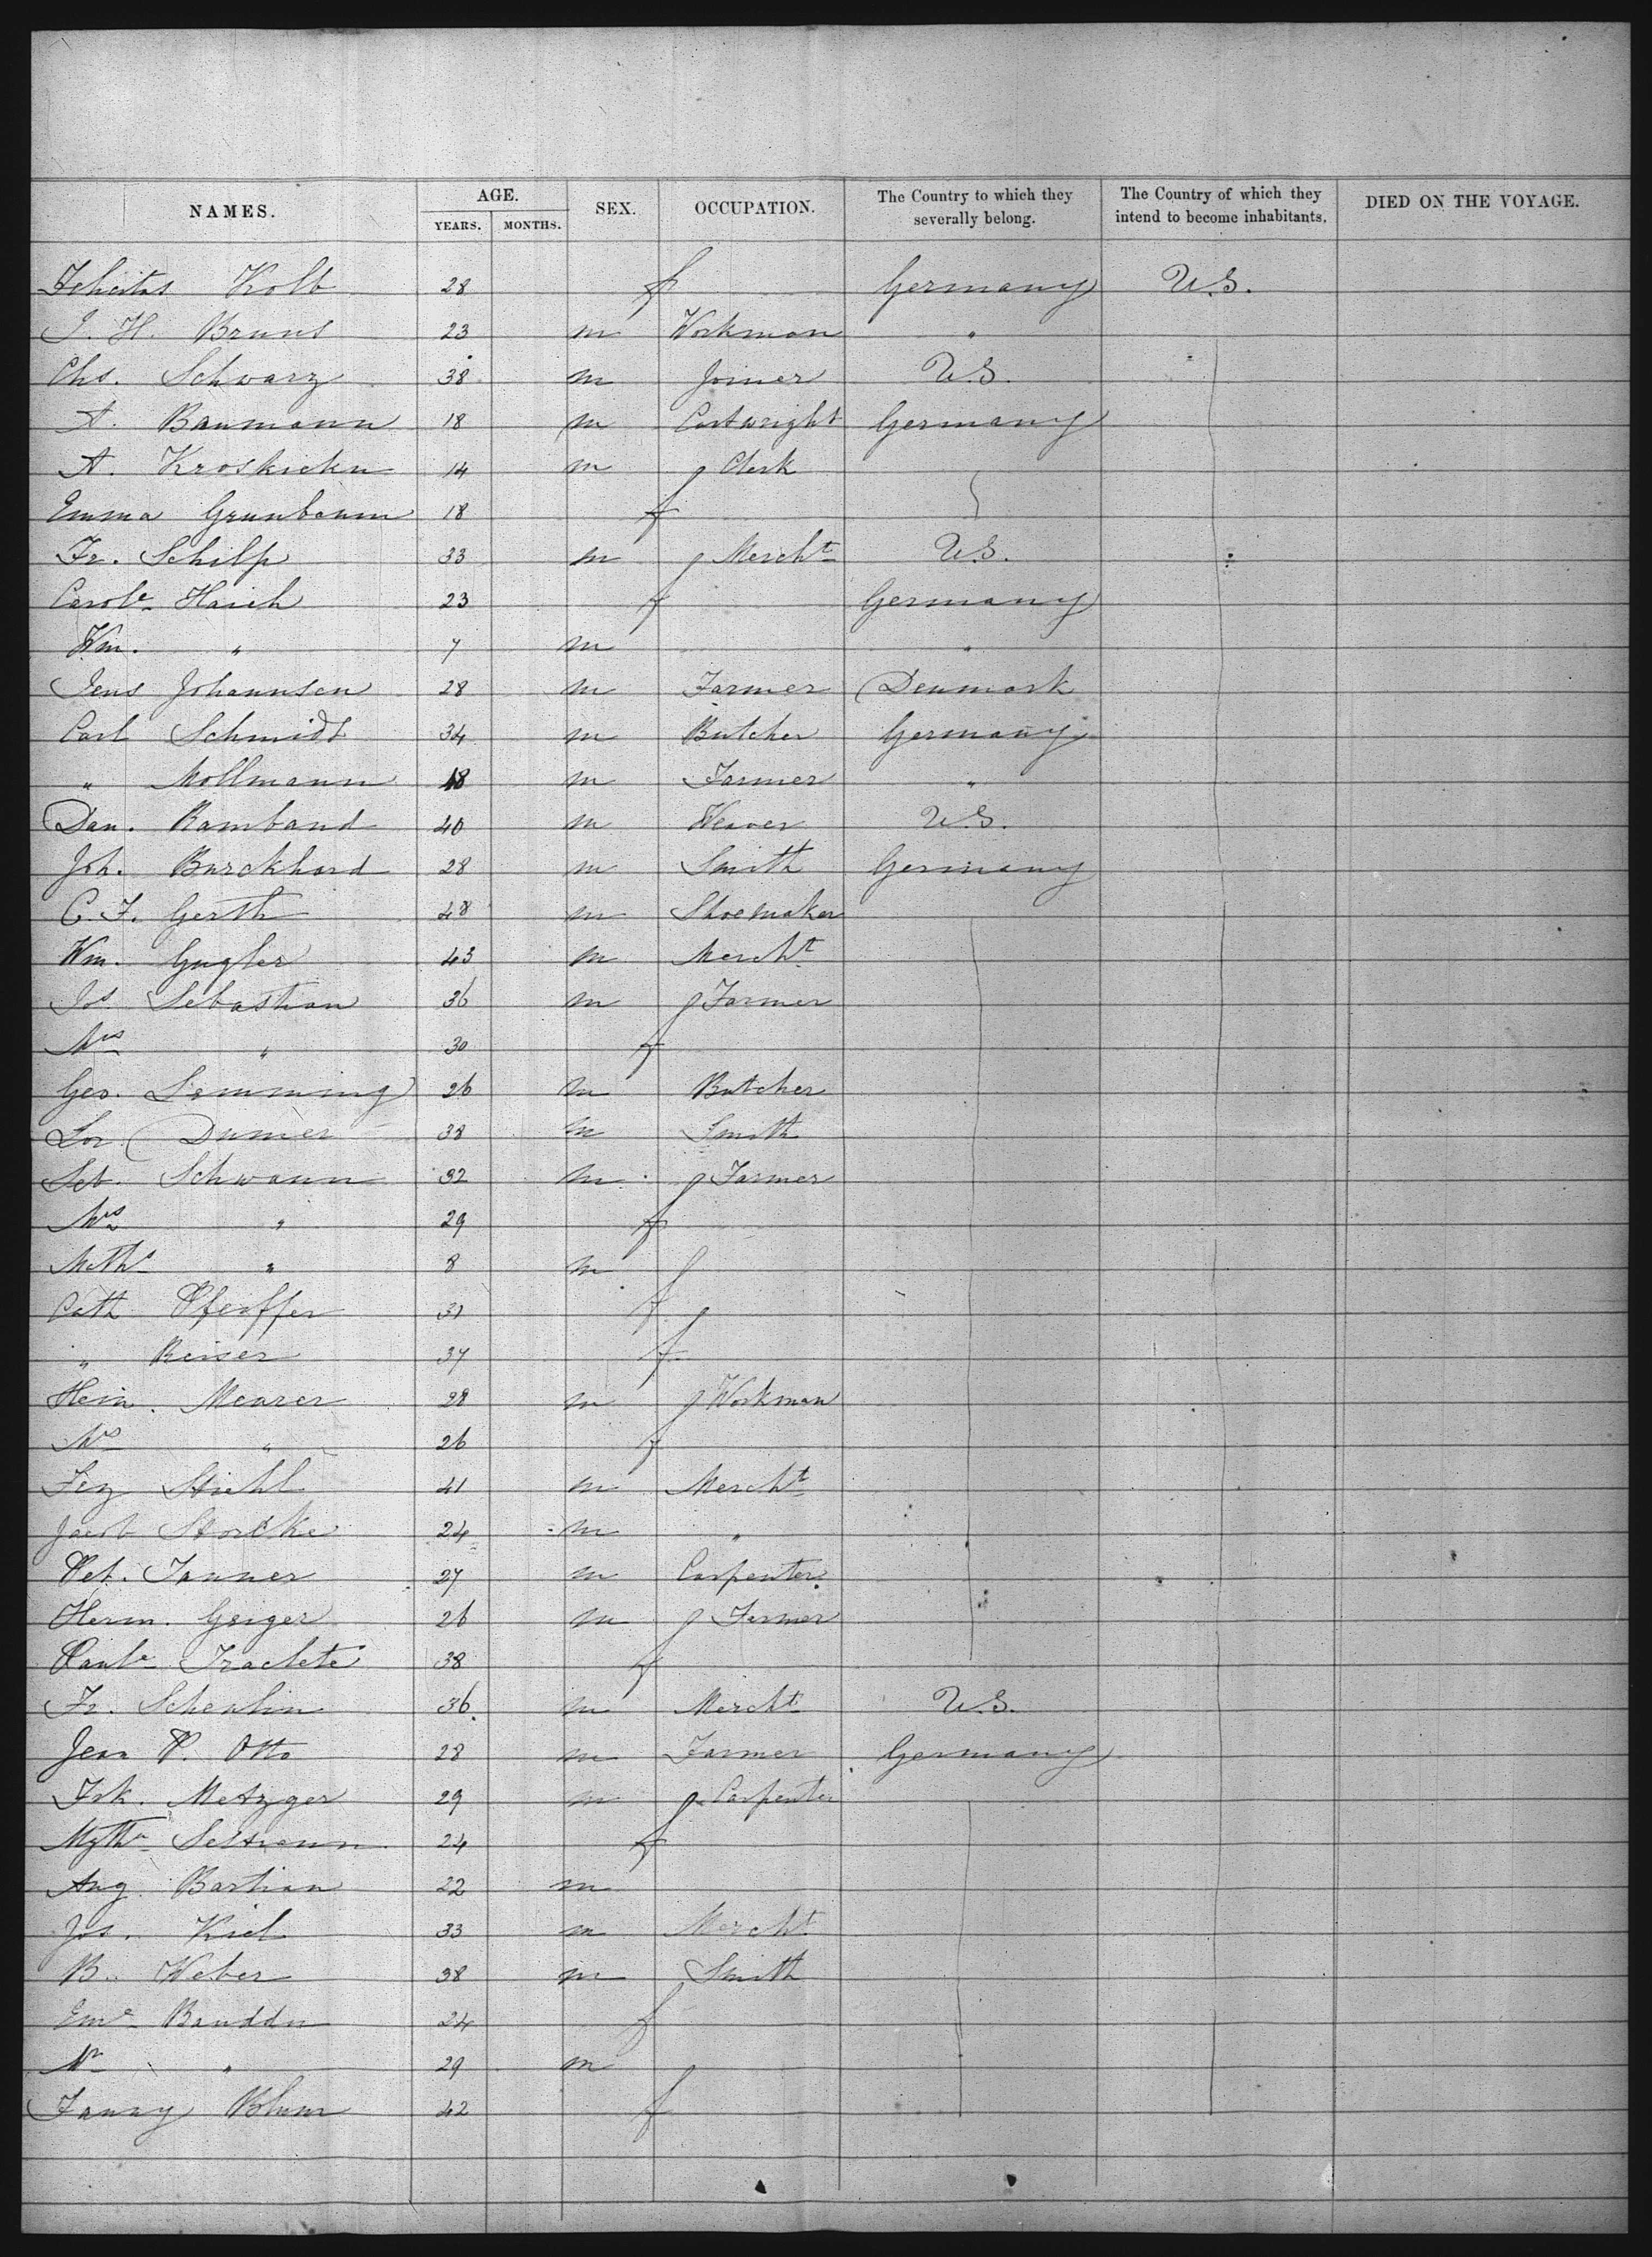 NAMES. AGE. YEARS. MONTHS. SEX. OCCUPATION. The Country to which they severally belong. The Country of which they intend to become inhabitants. DIED ON THE VOYAGE.
Felicitas Kolb 28 f Germany U.S.
J. H. Bruns 23 m Workman "
Chs. Schwarz 38 m Joiner U.S.
A. Baumann 18 m Cartwright Germany
A. Kroskickn 14 m Clerk
Emma Grunbaum 18 f
Fr. Schilp 33 m Mercht U.S.
Carole Haich 23 f Germany
Wm. " 7 m "
Jens Johannsen 28 m Farmer Denmark
Carl Schmidt 34 m Butcher Germany
" Mollmann 18 m Farmer "
Dan. Ramband 40 m Weaver U.S.
Joh. Burckhard 28 m Smith Germany
C. F. Gerth 48 m Shoemaker
Wm. Gugler 43 m Mercht
Jos Sebastian 36 m Farmer
Mrs " 30 f
Geo. Lemming 26 m Butcher
Lor. Dumer 38 m Smith
Seb. Schwann 32 m Farmer
Mrs " 29 f
Mths " 8 m
Cath Pfeiffer 31 f
" Reiser 37 f
Hein. Meurer 28 m Workman
Mrs " 26 f
Fez Stiehl 41 m Mercht
Jacob Storcke 24 m "
Pet. Tanner 27 m Carpenter
Herm. Geiger 26 m Farmer
Paule Trachte 38 f
Fr. Schenlin 36 m Mercht U.S.
Jean P. Otto 28 m Farmer Germany
Frk. Metzger 29 m Carpenter
24 f
Aug. Bastian 22 m
Jos. Kiel 33 m Mercht
B. Weber 38 m Smith
Eme Bauddu 24 f
Mr " 29 m
Fanny Blum 42 f